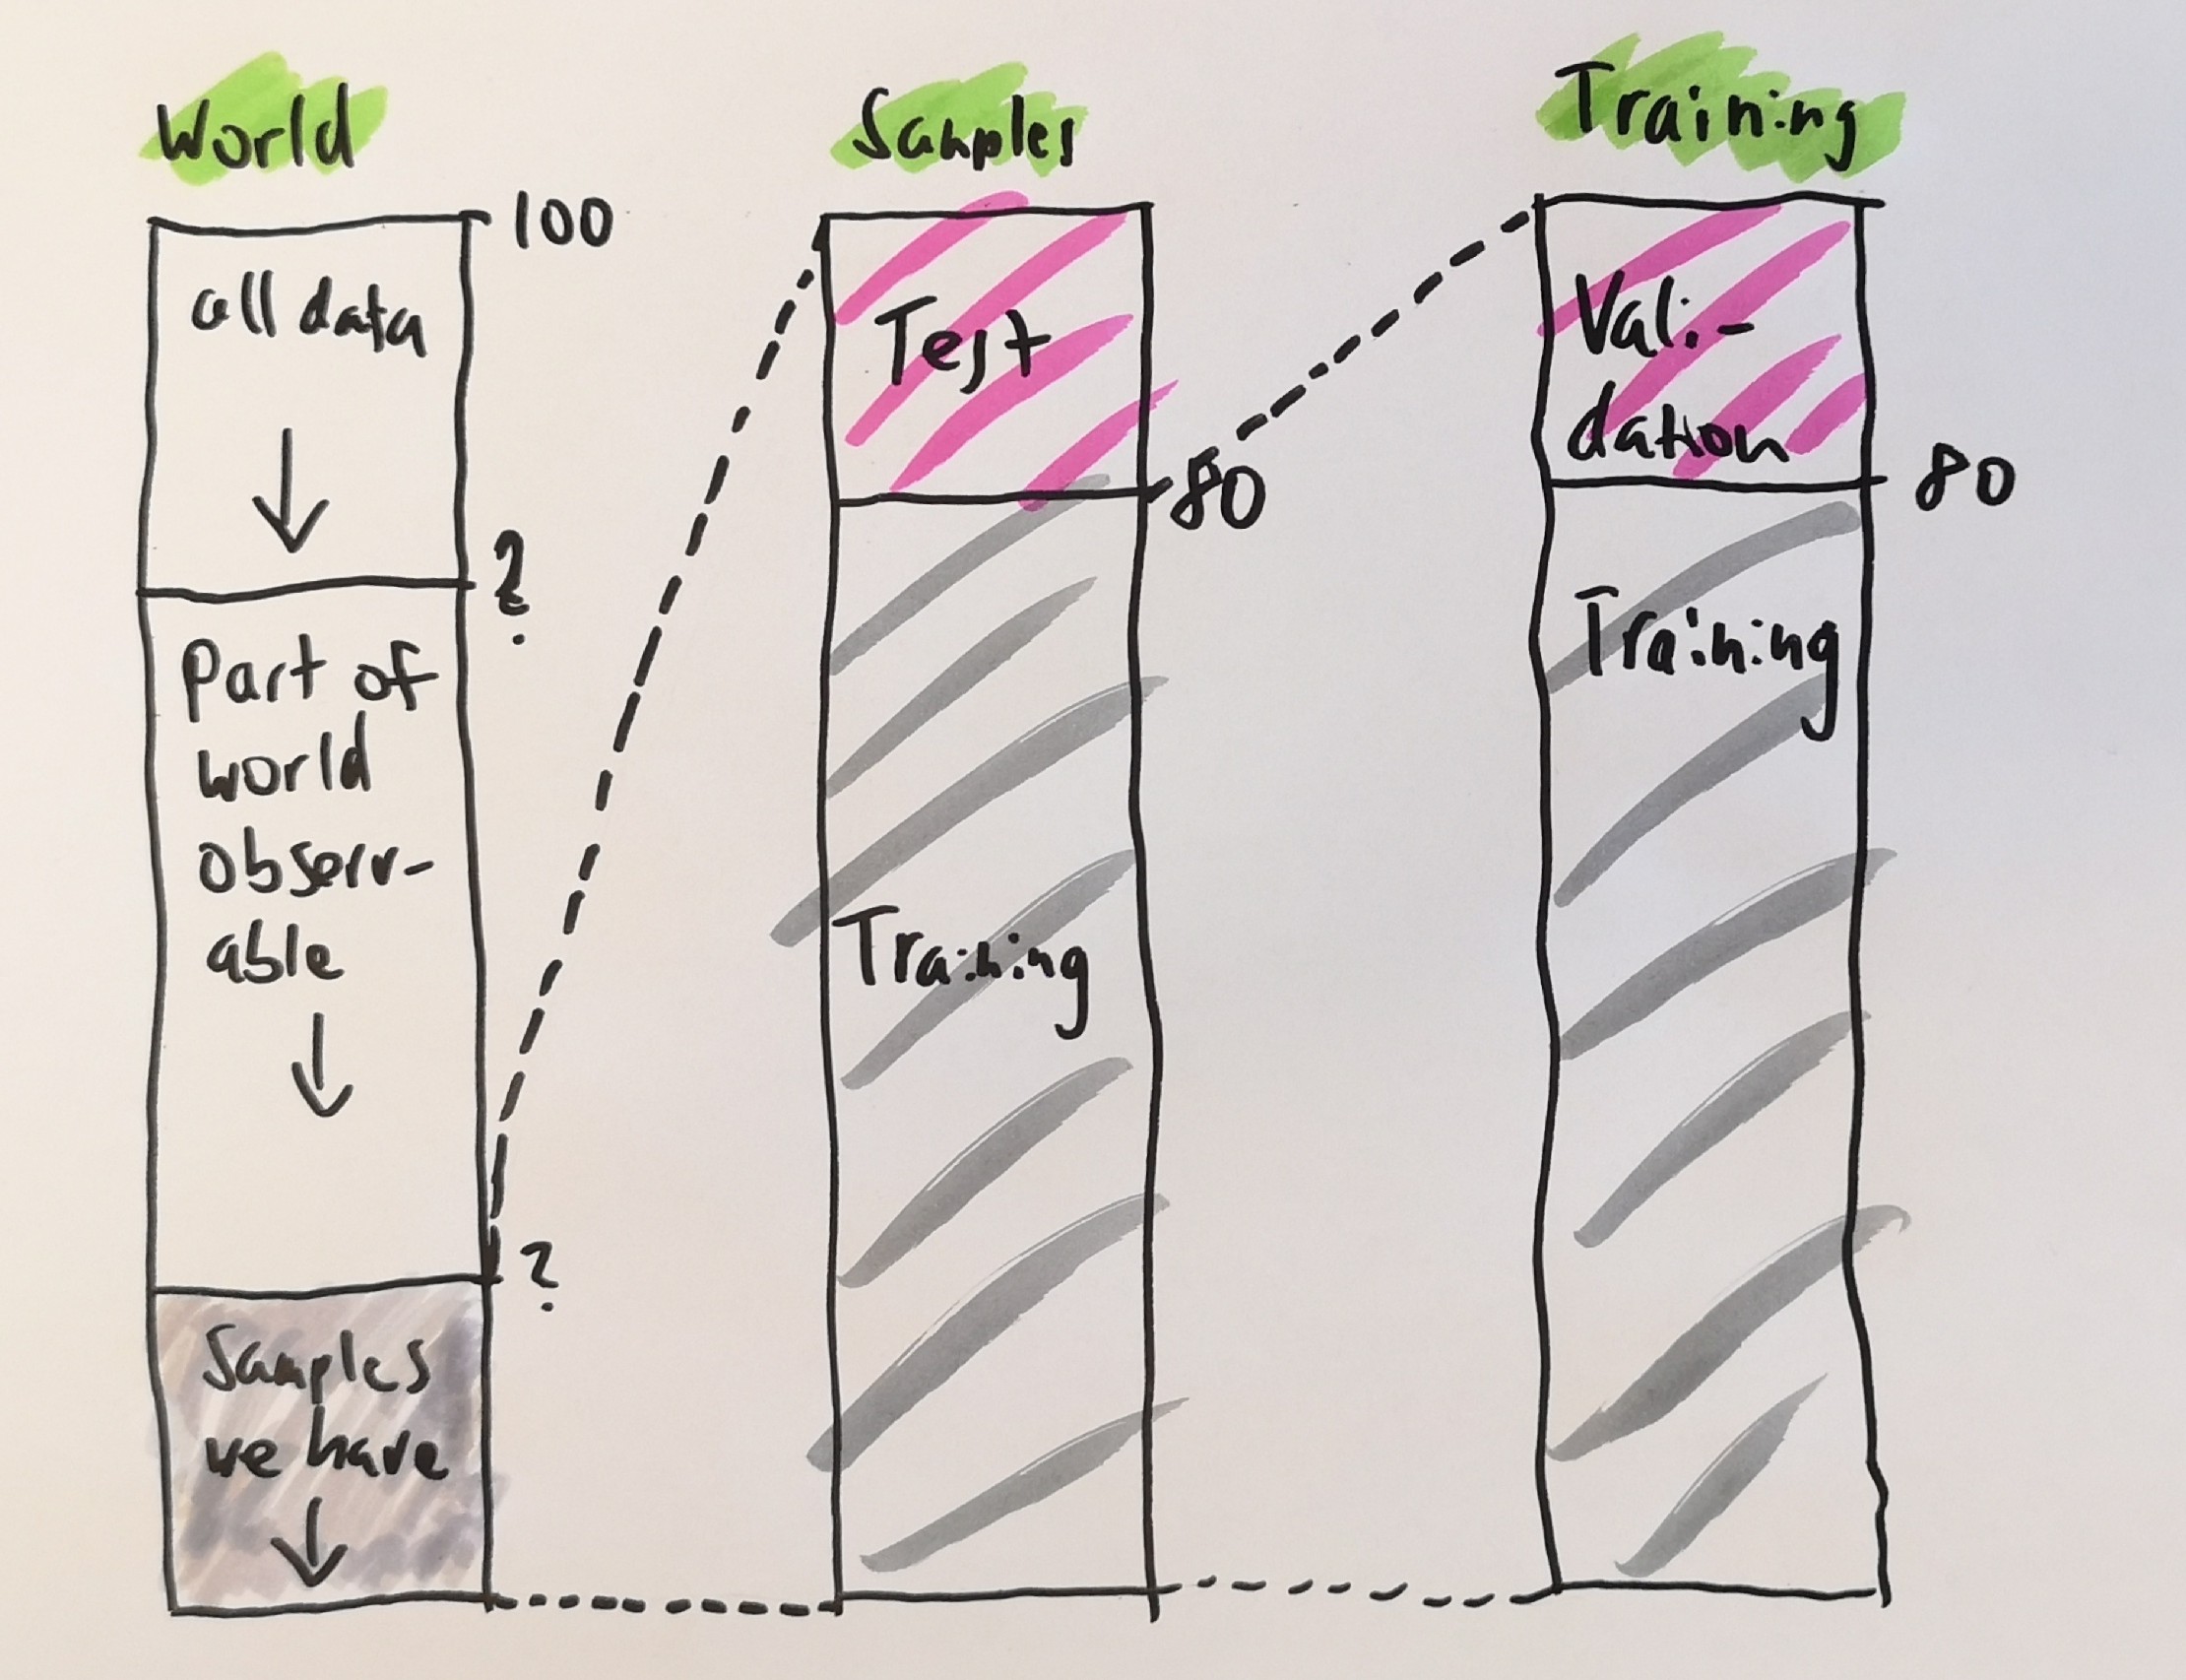 World
100
all data
?
Part of
world
observ-
able
?
Samples
we have
Samples
Test
80
Training
Training
Vali-
dation
80
Training